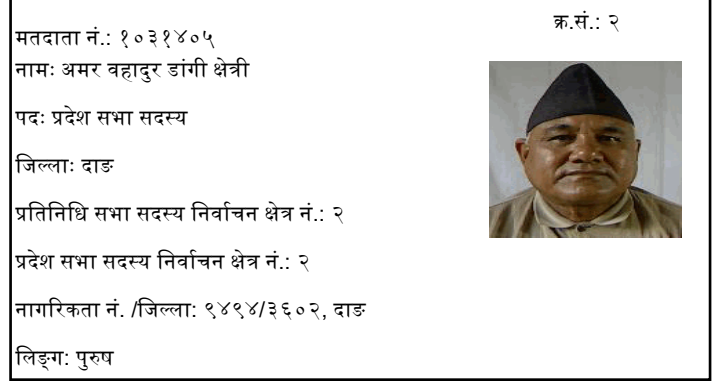 क्र.सं.: २
मतदाता नं.: १०३१४०५
नामः अमर वहादुर डांगी क्षेत्री
पदः प्रदेश सभा सदस्य
जिल्लाः दाङ
प्रतिनिधि सभा सदस्य निर्वाचन क्षेत्र नं.: २
प्रदेश सभा सदस्य निर्वाचन क्षेत्र नं.: २
नागरिकता नं. /जिल्ला: ९४९४/३६०२, दाङ
लिङ्ग: पुरुष